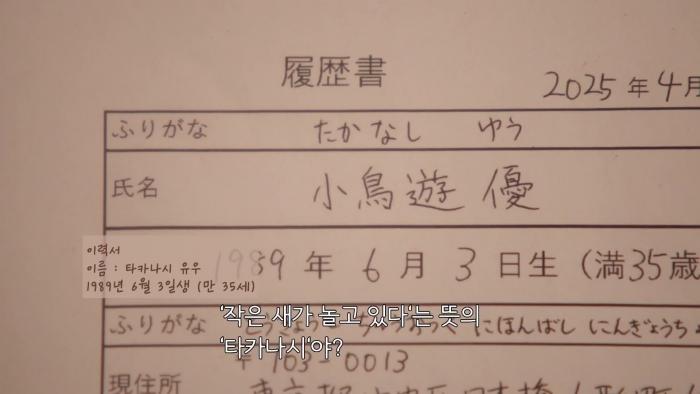 履歴書
2025年4月
ふりがな たかなし ゆう
氏名 小鳥遊 優
이력서
이름 : 타카나시 유우
1989년 6월 3일생 (만 35세)
1989年 6月 3日生 (満35歳
'작은 새가 놀고 있다'는 뜻의
'타카나시'야?
ふりがな にほんばし にんぎょうちょ
〒103-0013
現住所